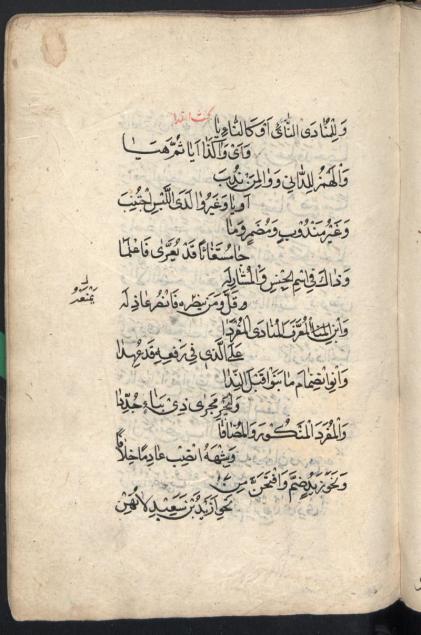 مبحث النداء
وَلِلْمُنَادَى النَّاءِ أَوْ كَالنَّاءِ يَا
وَأَيْ وَآ كَذَا أَيَا ثُمَّ هَيَا
وَالْهَمْزُ لِلدَّانِي وَوَا لِمَنْ نُدِبْ
أَوْ يَا وَغَيْرُ وَا لَدَى اللَّبْسِ اجْتُنِبْ
وَغَيْرُ مَنْدُوبٍ وَمُضْمَرٍ وَمَا
جَا مُسْتَغَاثًا قَدْ يُعَرَّى فَاعْلَمَا
وَذَاكَ فِي اسْمِ الْجِنْسِ وَالْمُشَارِ لَهْ
قَلَّ وَمَنْ يمنعه فَانْصُرْ عَاذِلَهْ
يَمْنَعْهُ
وَابْنِ الْمُعَرَّفَ الْمُنَادَى الْمُفْرَدَا
عَلَى الَّذِي فِي رَفْعِهِ قَدْ عُهِدَا
وَانْوِ انْضِمَامَ مَا بَنَوْا قَبْلَ النِّدَا
وَلْيُجْرَ مُجْرَى ذِي بِنَاءٍ جُدِّدَا
وَالْمُفْرَدَ الْمَنْكُورَ وَالْمُضَافَا
وَشِبْهَهُ انْصِبْ عَادِمًا خِلَافَا
وَنَحْوَ زَيْدٍ ضُمَّ وَافْتَحَنَّ مِنْ
نَحْوِ أَزَيْدُ بْنَ سَعِيدٍ لَا تَهِنْ